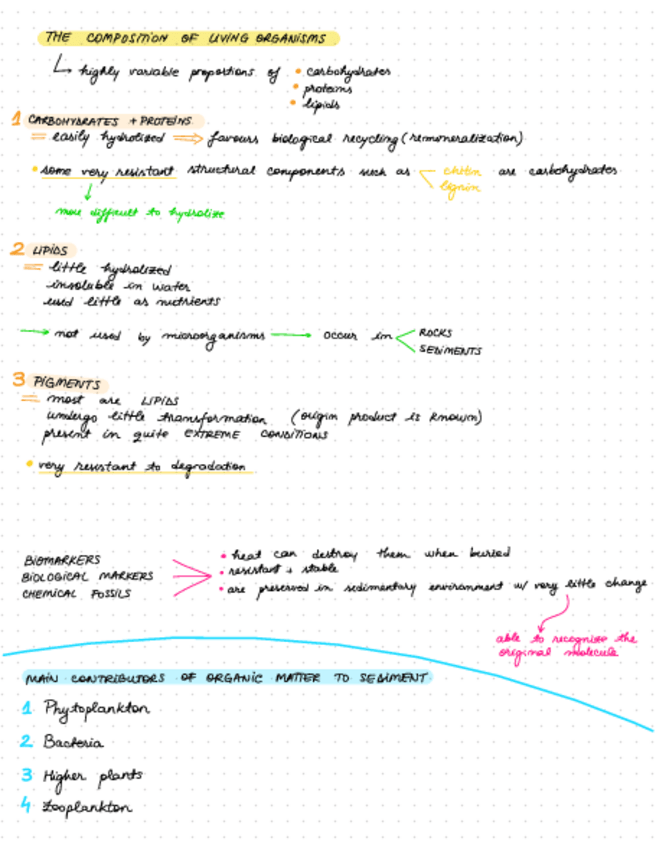 THE COMPOSITION OF LIVING ORGANISMS
highly variable proportions of • carbohydrates
• proteins
• lipids
1 CARBOHYDRATES + PROTEINS
= easily hydrolized ⇒ favours biological recycling (remineralization)
• some very resistant structural components such as chitin are carbohydrates
lignin
more difficult to hydrolize
2 LIPIDS
= little hydrolized
insoluble in water
used little as nutrients
→ not used by microorganisms → occur in ROCKS
SEDIMENTS
3 PIGMENTS
= most are LIPIDS
undergo little transformation (origin product is known)
present in quite EXTREME CONDITIONS
• very resistant to degradation
BIOMARKERS
BIOLOGICAL MARKERS
CHEMICAL FOSSILS
• heat can destroy them when buried
• resistant + stable
• are preserved in sedimentary environment w/ very little change
able to recognize the
original molecule
MAIN CONTRIBUTORS OF ORGANIC MATTER TO SEDIMENT
1 Phytoplankton
2 Bacteria
3 Higher plants
4 Zooplankton